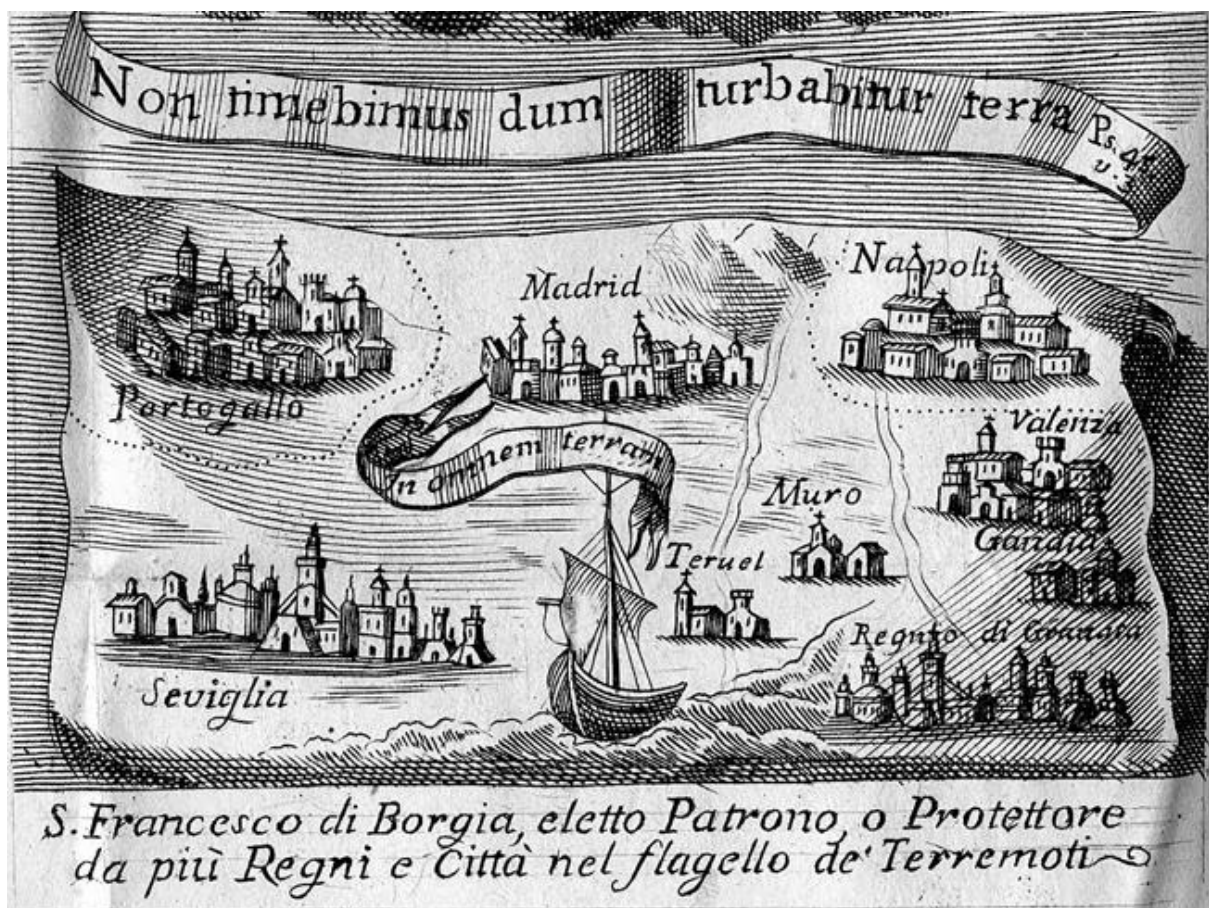 Non timebimus dum turbabitur terra Ps. 45
v. 3
Madrid
Napoli
Portogallo
Valenza
In omnem terram
Muro
Gandia
Teruel
Regnto di Granata
Seviglia
S. Francesco di Borgia, eletto Patrono, o Protettore
da più Regni e Città nel flagello de' Terremoti